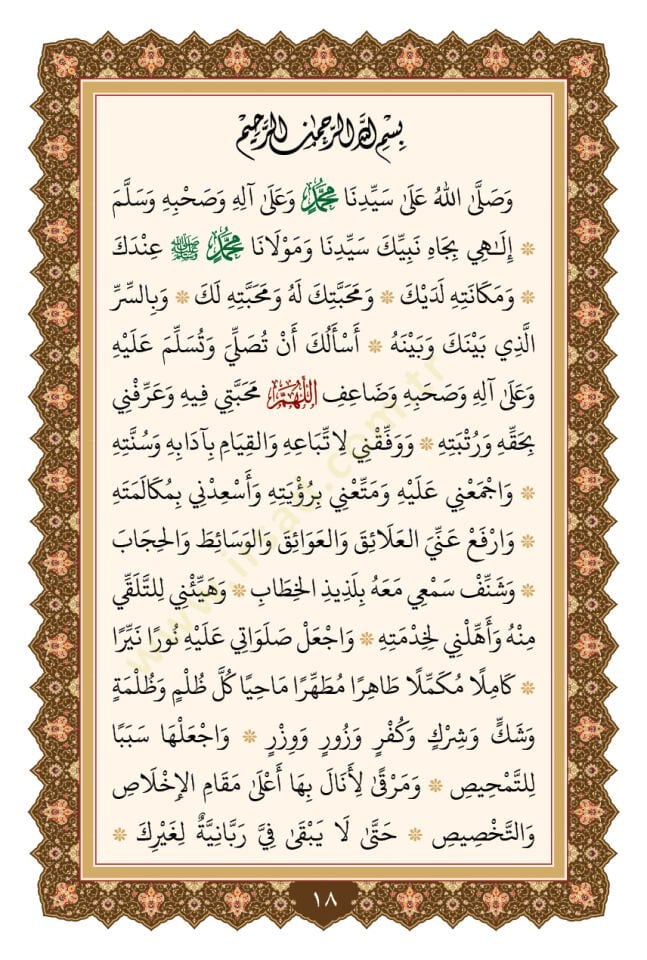 بِسْمِ اللهِ الرَّحْمٰنِ الرَّحِيْمِ
وَصَلَّى اللهُ عَلَى سَيِّدِنَا مُحَمَّدٍ وَعَلَى آلِهِ وَصَحْبِهِ وَسَلَّمَ
❊ إِلَـٰهِي بِجَاهِ نَبِيِّكَ سَيِّدِنَا وَمَوْلَانَا مُحَمَّدٍ ﷺ عِنْدَكَ
❊ وَمَكَانَتِهِ لَدَيْكَ ❊ وَمَحَبَّتِكَ لَهُ وَمَحَبَّتِهِ لَكَ ❊ وَبِالسِّرِّ
الَّذِي بَيْنَكَ وَبَيْنَهُ ❊ أَسْأَلُكَ أَنْ تُصَلِّيَ وَتُسَلِّمَ عَلَيْهِ
وَعَلَى آلِهِ وَصَحَبِهِ وَضَاعِفِ اللّٰهُمَّ مَحَبَّتِي فِيهِ وَعَرِّفْنِي
بِحَقِّهِ وَرُتْبَتِهِ ❊ وَوَفِّقْنِي لِاتِّبَاعِهِ وَالقِيَامِ بِآدَابِهِ وَسُنَّتِهِ
❊ وَاجْمَعْنِي عَلَيْهِ وَمَتِّعْنِي بِرُؤْيَتِهِ وَأَسْعِدْنِي بِمُكَالَمَتِهِ
❊ وَارْفَعْ عَنِّيَ العَلَائِقَ وَالعَوَائِقَ وَالوَسَائِطَ وَالحِجَابَ
❊ وَشَنِّفْ سَمْعِي مَعَهُ بِلَذِيذِ الخِطَابِ ❊ وَهَيِّئْنِي لِلتَّلَقِّي
مِنْهُ وَأَهِّلْنِي لِخِدْمَتِهِ ❊ وَاجْعَلْ صَلَوَاتِي عَلَيْهِ نُورًا نَيِّرًا
❊ كَامِلًا مُكَمِّلًا طَاهِرًا مُطَهِّرًا مَاحِيًا كُلَّ ظُلْمٍ وَظُلْمَةٍ
وَشَكٍّ وَشِرْكٍ وَكُفْرٍ وَزُورٍ وَوِزْرٍ ❊ وَاجْعَلْهَا سَبَبًا
لِلتَّمْحِيصِ ❊ وَمَرْقًى لِأَنَالَ بِهَا أَعْلَى مَقَامِ الإِخْلَاصِ
وَالتَّخْصِيصِ ❊ حَتَّى لَا يَبْقَى فِيَّ رَبَّانِيَّةٌ لِغَيْرِكَ ❊
١٨